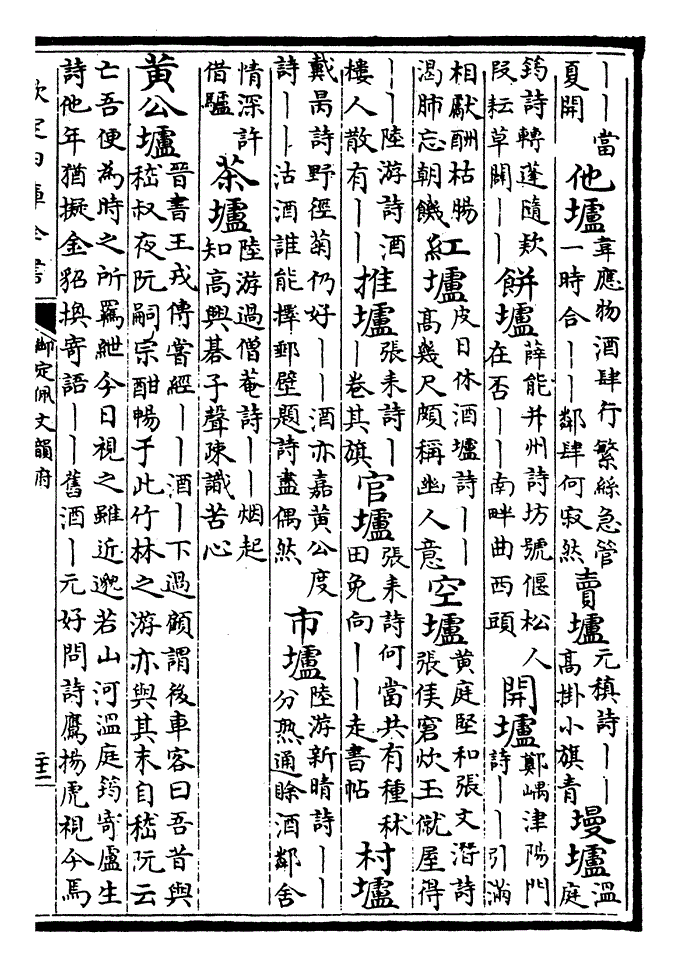 ｜｜當夏開 他壚 韋應物酒肆行繁絲急管一時合｜｜鄰肆何寂然 賣壚 元稹詩｜｜高掛小旗青 墁壚 溫庭
筠詩轉蓬隨欵段耘草闢｜｜ 餅壚 薛能并州詩坊號偃松人在否｜｜南畔曲西頭 開壚 鄭嵎津陽門詩｜｜引滿
相獻酬枯腸渴肺忘朝饑 紅壚 皮日休酒壚詩｜｜高幾尺頗稱幽人意 空壚 黄庭堅和張文潛詩張侯窘炊玉僦屋得
｜｜陸游詩酒樓人散有｜｜ 推壚 張耒詩｜｜卷其旗 官壚 張耒詩何當共有種秫田免向｜｜走書帖 村壚
戴昺詩野徑菊仍好｜｜酒亦嘉黃公度詩｜｜沽酒誰能擇郵壁題詩盡偶然 市壚 陸游新晴詩｜｜分熟通賖酒鄰舍
情深許借驢 茶壚 陸游過僧菴詩｜｜烟起知高興碁子聲疎識苦心
黃公壚 晉書王戎傳嘗經｜｜酒｜下過顧謂後車客曰吾昔與嵇叔夜阮嗣宗酣暢于此竹林之游亦與其末自嵇阮云
亡吾便為時之所羈紲今日視之雖近邈若山河溫庭筠寄盧生詩他年猶擬金貂換寄語｜｜舊酒｜元好問詩鷹揚虎視今焉
欽定四庫全書
御定佩文韻府